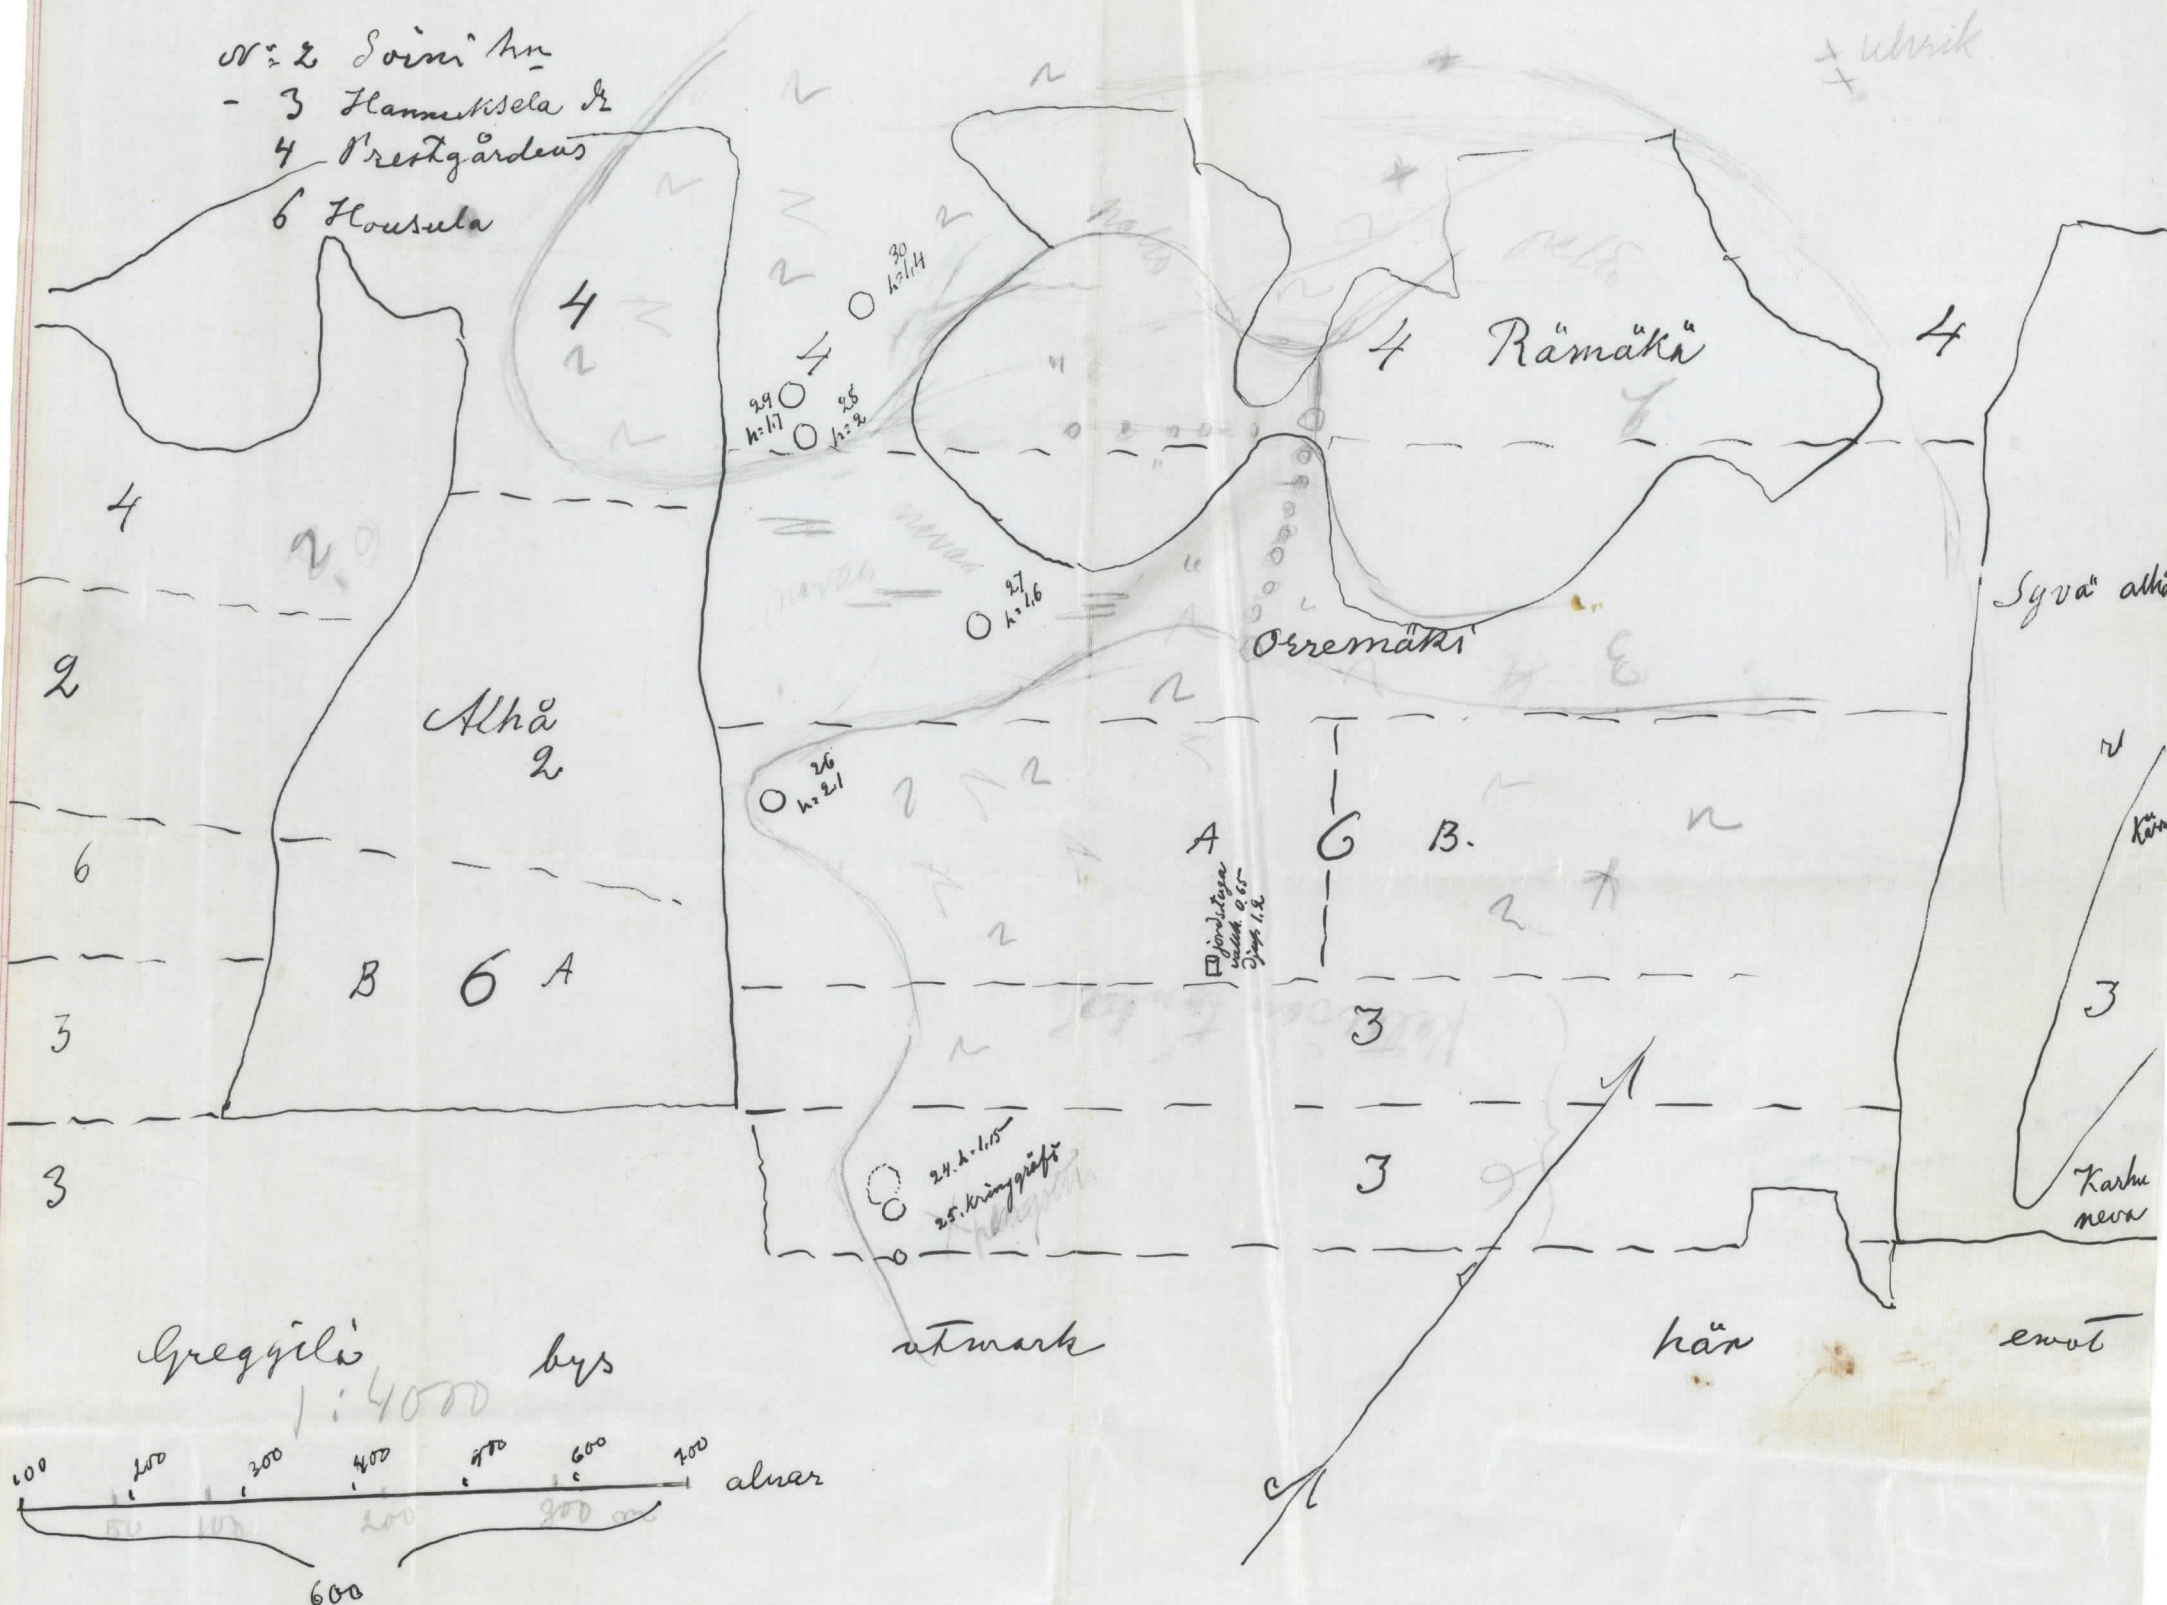 № 2 Soini hn
- 3 Hannuksela
4 Prestgårdens
6 Housula
4
30
h=1,4
4
29
h=1,7
28
h=2
4
Rämäkä
4
4
27
h=1,6
Orremäki
Syvä
2
Alhå
2
26
h=2,1
6
A
6
B.
jordstuga
vallh. 0,65
Djup 1,2
B
6
A
3
3
3
24. h=1,15
25. kringgräft
3
3
3
Karhu
neva
Greggilä
bys
utmark
här
emot
1:4000
100
200
300
400
500
600
700
alnar
50
100
200
300
m
600